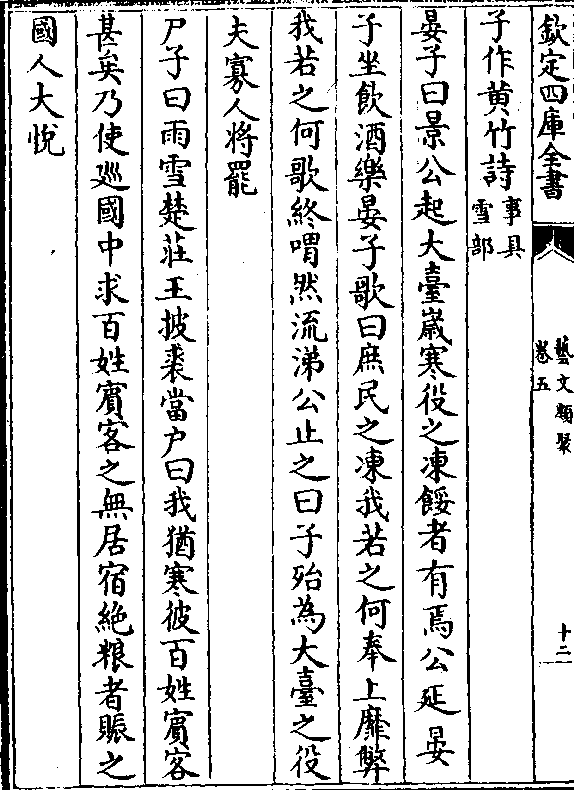 欽定四庫全書
藝文類聚
卷五
十二
子作黄竹詩事具
雪部
晏子曰景公起大臺嵗寒役之凍餒者有焉公延晏
子坐飲酒樂晏子歌曰庶民之凍我若之何奉上靡弊
我若之何歌終喟然流涕公止之曰子殆為大臺之役
夫寡人将罷
尸子曰雨雪楚莊王披裘當户曰我猶寒彼百姓賓客
甚矣乃使廵國中求百姓賓客之無居宿絶粮者賑之
國人大悅